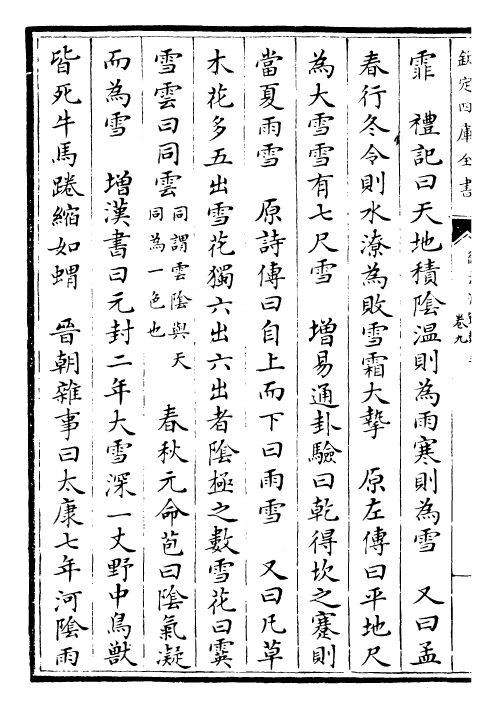 欽定四庫全書
卷九
霏　禮記曰天地積陰温則為雨寒則為雪　又曰孟
春行冬令則水潦為敗雪霜大摯　原左傳曰平地尺
為大雪雪有七尺雪　增易通卦驗曰乾得坎之蹇則
當夏雨雪　原詩傳曰自上而下曰雨雪　又曰凡草
木花多五出雪花獨六出六出者陰極之數雪花曰霙
雪雲曰同雲同謂雲陰與天同為一色也　春秋元命苞曰陰氣凝
而為雪　增漢書曰元封二年大雪深一丈野中鳥獸
皆死牛馬踡縮如蝟　晉朝雜事曰太康七年河陰雨